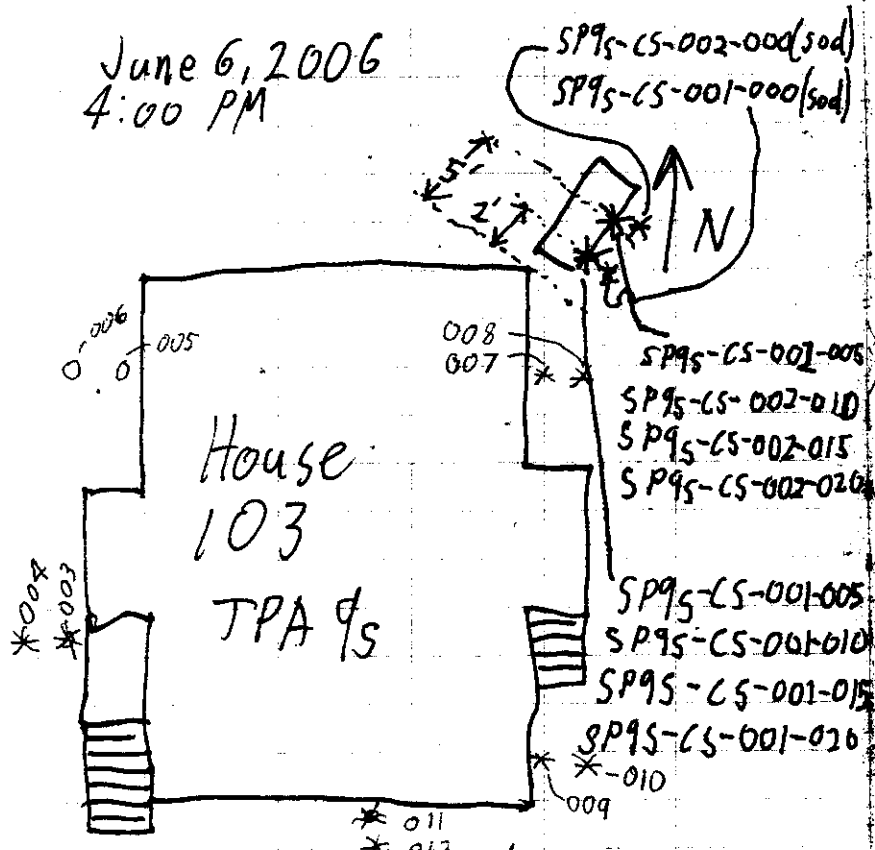 June 6, 2006
4:00 PM
SP9s-CS-002-000(sod)
SP9s-CS-001-000(sod)
5'
2'
N
006
005
008
007
SP9s-CS-002-005
SP9s-CS-002-010
SP9s-CS-002-015
SP9s-CS-002-020
House
103
TPA 9s
004
003
SP9s-CS-001-005
SP9s-CS-001-010
SP9s-CS-001-015
SP9s-CS-001-020
-010
009
011